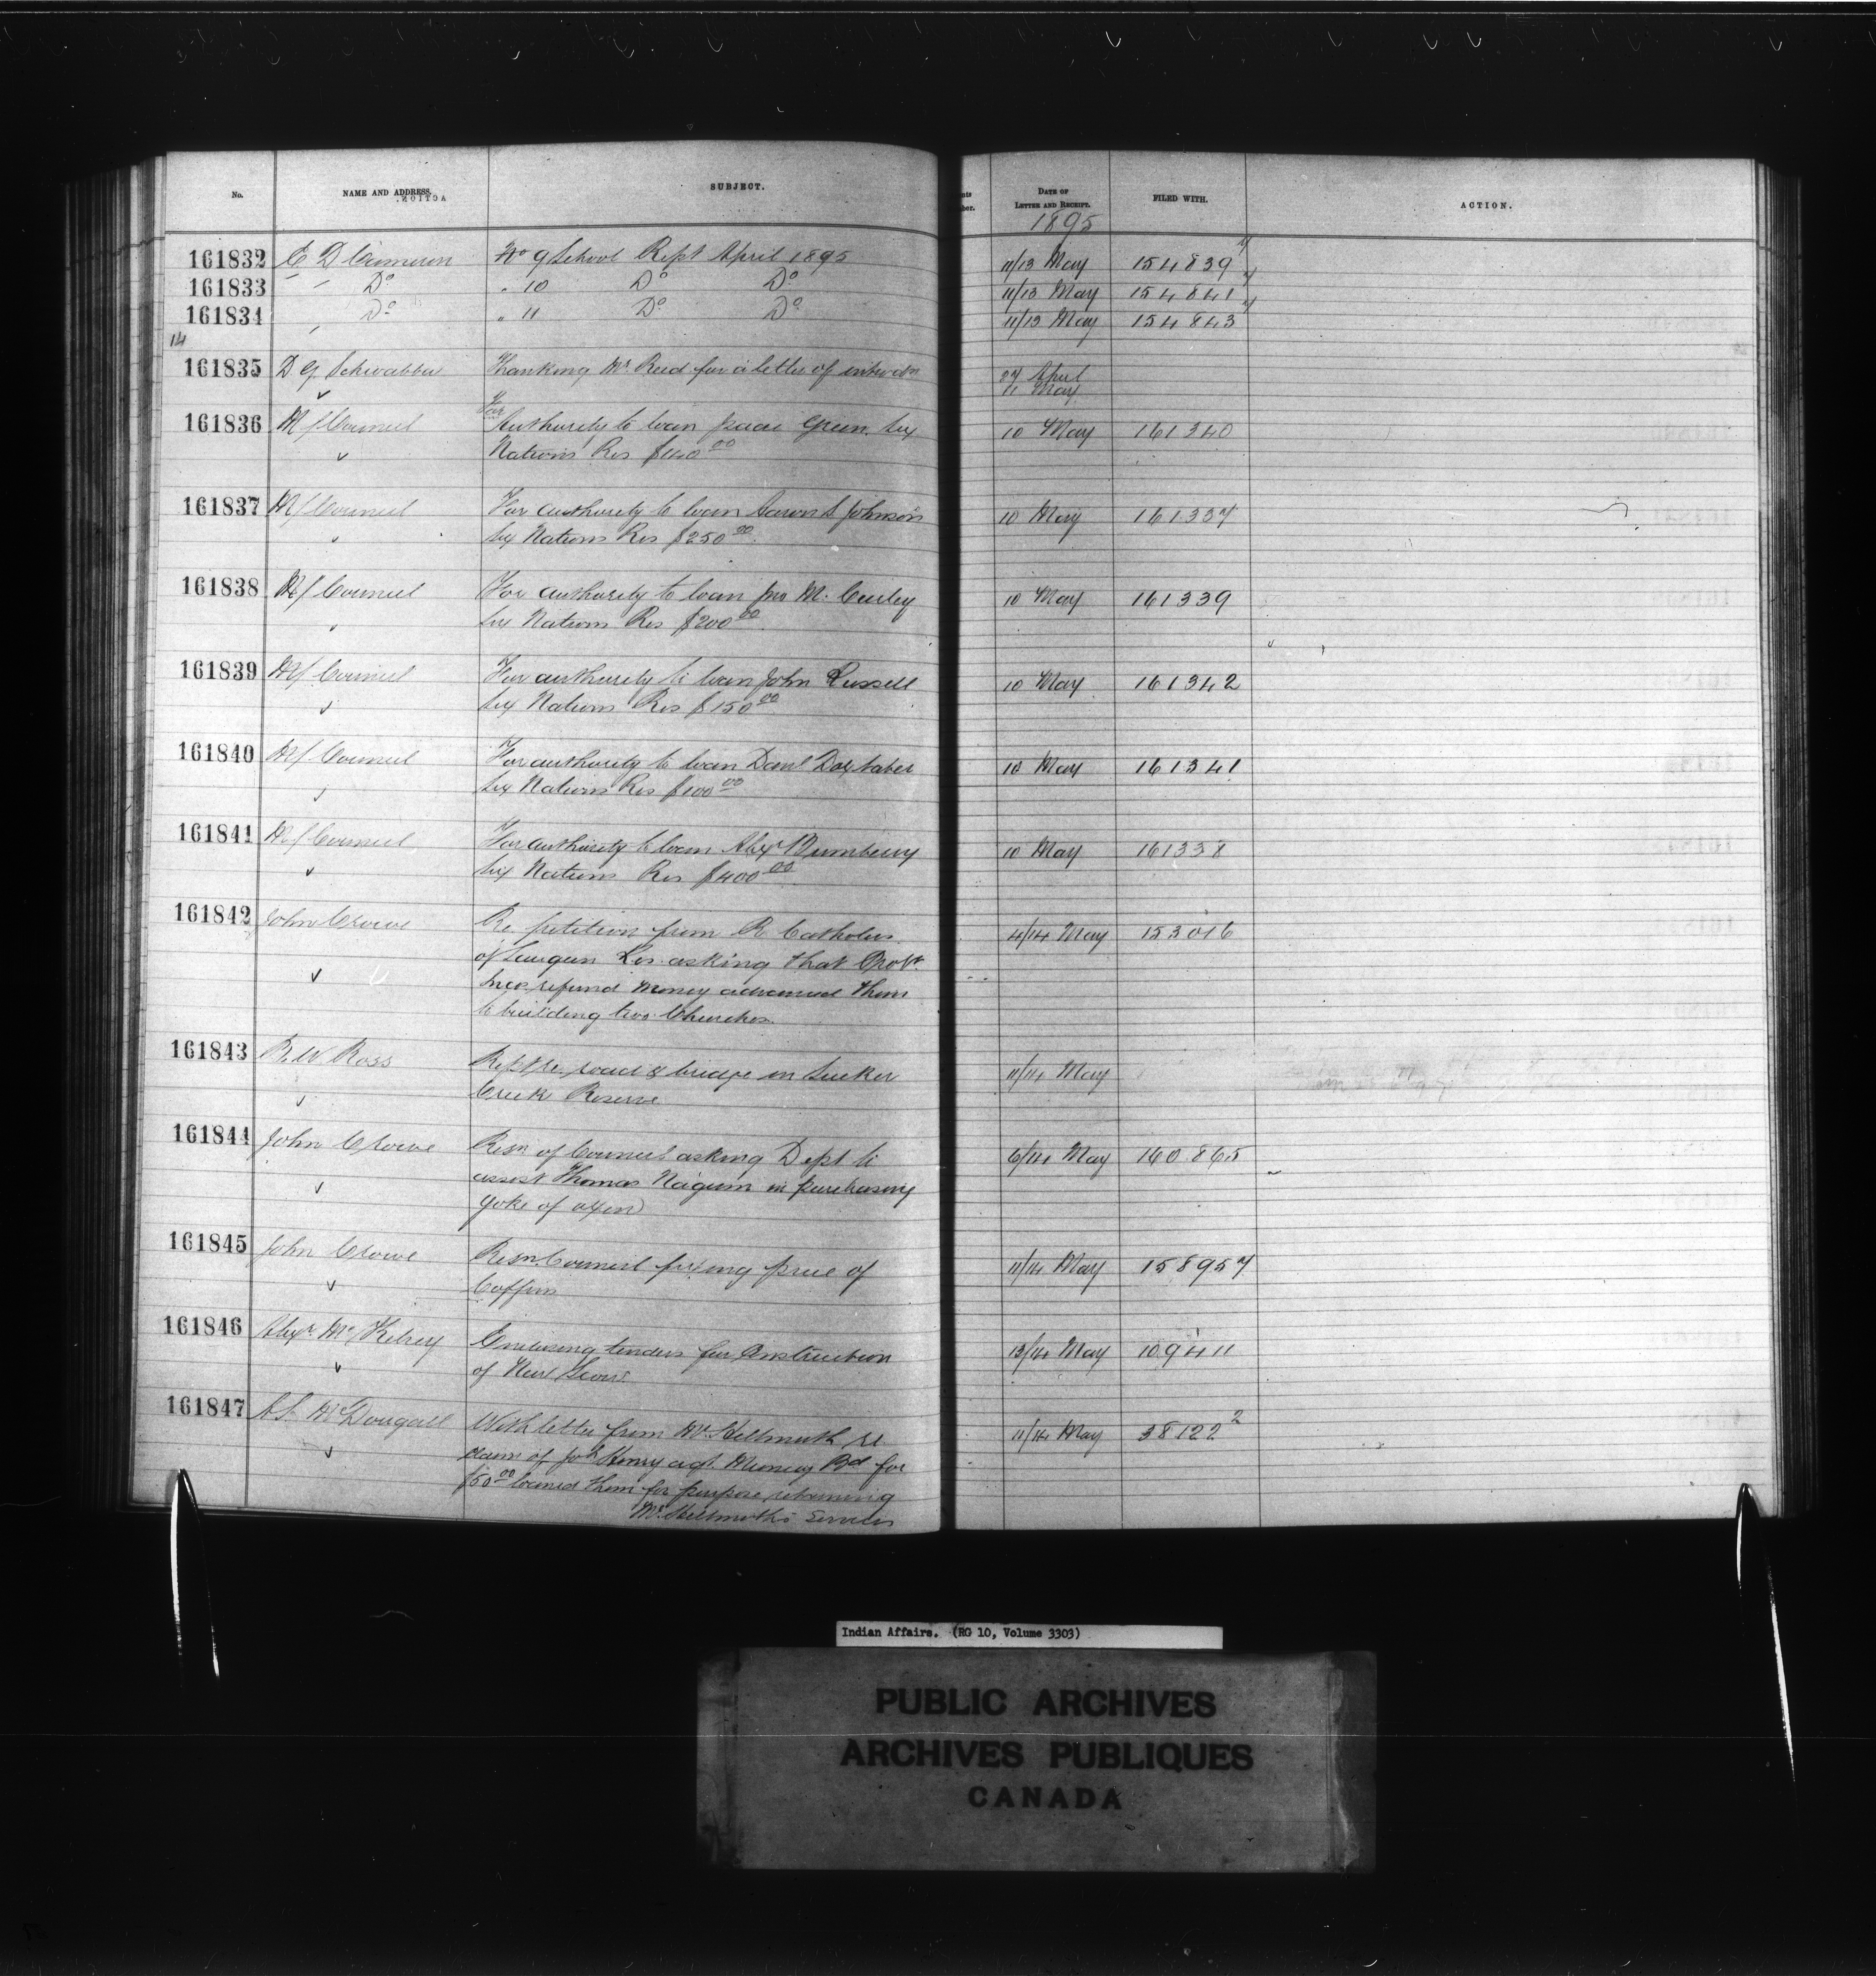 No. NAME AND ADDRESS. SUBJECT. DATE OF LETTER AND RECEIPT. FILED WITH. ACTION.
1895
161832 C D Cameron No 9 School Rept April 1895 11/13 May 154839
161833 " Do " 10 Do Do 11/13 May 154841
161834 " Do " 11 Do Do 11/13 May 154843
14
161835 D G Thanking Mr Reid for a letter of 27 April
11 May
161836 M/ Council For Authority to loan Isaac Green Six 10 May 161340
Nations Res $140 00
161837 M/ Council For authority to loan Aaron S Johnson 10 May 161337
Six Nations Res $250 00
161838 M/ Council For authority to loan Jno M. Curley 10 May 161339
Six Nations Res $200 00
161839 M/ Council For authority to loan John Russell 10 May 161342
Six Nations Res $150 00
161840 M/ Council For authority to loan Danl Doxtater 10 May 161341
Six Nations Res $100 00
161841 M/ Council For authority to loan Alexr Bumberry 10 May 161338
Six Nations Res $400 00
161842 John Crowe Re petition from R Catholics 4/14 May 153016
of Saugeen Res asking that
refund money advanced them
to building two Churches
161843 R. W Ross Rept re road & bridge on Sucker 11/14 May
Creek Reserve
161844 John Crowe Resn of Council asking Dept to 6/14 May 160865
assist Thomas Nagum in purchasing
yoke of oxen
161845 John Crowe Resn Council fixing price of 11/14 May 158957
Coffins
161846 Alexr Mc Kelvey Enclosing tenders for Construction 13/14 May 109411
of New Scow
161847 A S. McDougall With letter from Mr. Hellmuth re 11/14 May 38122 2
claim of Henry agt. Muncey Bd for
$50 00 loaned them for purpose retaining
Mr. Hellmuth's services
Indian Affairs. (RG 10, Volume 3303)
PUBLIC ARCHIVES
ARCHIVES PUBLIQUES
CANADA